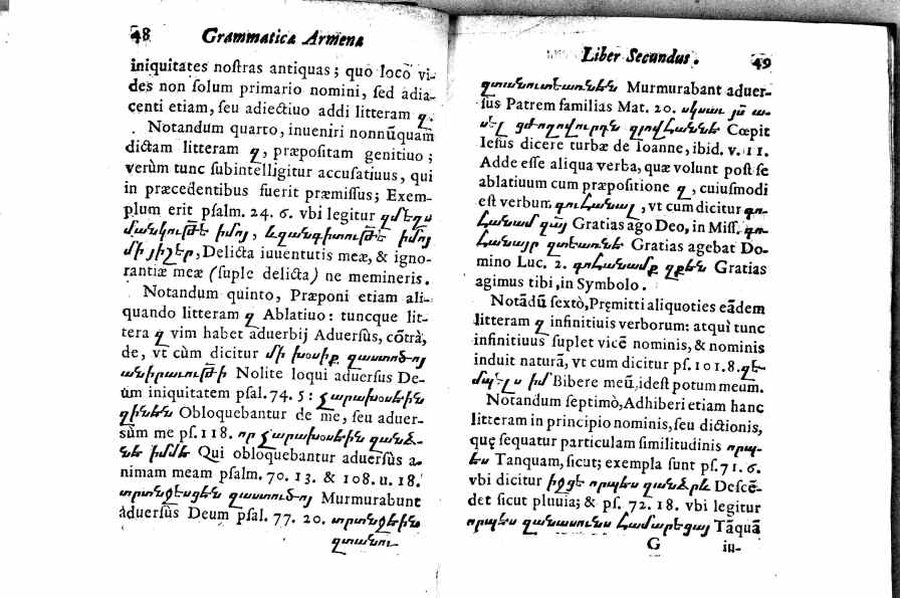 48 Grammatica Armena
iniquitates nostras antiquas; quo loco vi-
des non solum primario nomini, sed adia-
centi etiam, seu adiectiuo addi litteram զ.
Notandum quarto, inueniri nonnũquam
dictam litteram զ, præpositam genitiuo;
verùm tunc subintelligitur accusatiuus, qui
in præcedentibus fuerit præmissus; Exem-
plum erit psalm. 24. 6. vbi legitur զմեղս
մանկութե իմոյ, և զանգիտութե իմոյ
մի յիշեր, Delicta iuuentutis meæ, & igno-
rantiæ meæ (suple delicta) ne memineris.
Notandum quinto, Præponi etiam ali-
quando litteram զ Ablatiuo: tuncque lit-
tera զ vim habet aduerbij Aduersus, cõtrà,
de, vt cùm dicitur մի խօսիք զաստուծոյ
անիրաւութի Nolite loqui aduersus De-
um iniquitatem psal. 74. 5: չարախօսեին
զինեն Obloquebantur de me, seu aduer-
sũm me ps. 118. որ չարախօսեին զանձ-
նե իմմե Qui obloquebantur aduersũs a-
nimam meam psalm. 70. 13. & 108. u. 18.
տրտնջեսցեն զաստուծոյ Murmurabunt
àduersùs Deum psal. 77. 20. տրտնջեին
զտանու-
Liber Secundus. 49
զտանուտեառնեն Murmurabant aduer-
sus Patrem familias Mat. 20. սկսաւ յս ա-
սել ցժողովուրդն զյովհաննե Cœpit
Iesus dicere turbæ de Ioanne, ibid. v. 11.
Adde esse aliqua verba, quæ volunt post se
ablatiuum cum præpositione զ, cuiusmodi
est verbum գոհանալ, vt cum dicitur գո-
հանամ զայ Gratias ago Deo, in Miss. գո-
հանայր զտեառնե Gratias agebat Do-
mino Luc. 2. գոհանամք զքեն Gratias
agimus tibi, in Symbolo.
Notãdũ sextò, Pręmitti aliquoties eãdem
litteram զ infinitiuis verborum: atqui tunc
infinitiuus suplet vicẽ nominis, & nominis
induit naturã, vt cum dicitur ps. 101. 8. զը-
մպելս իմ Bibere meũ, idest potum meum.
Notandum septimò, Adhiberi etiam hanc
litteram in principio nominis, seu dictionis,
quę sequatur particulam similitudinis որպ-
ես Tanquam, sicut; exempla sunt ps. 71. 6.
vbi dicitur իջցե որպես զանձրև Descẽ-
det sicut pluuia; & ps. 72. 18. vbi legitur
որպես զանասունս համարեցայ Tãquã
G iu-